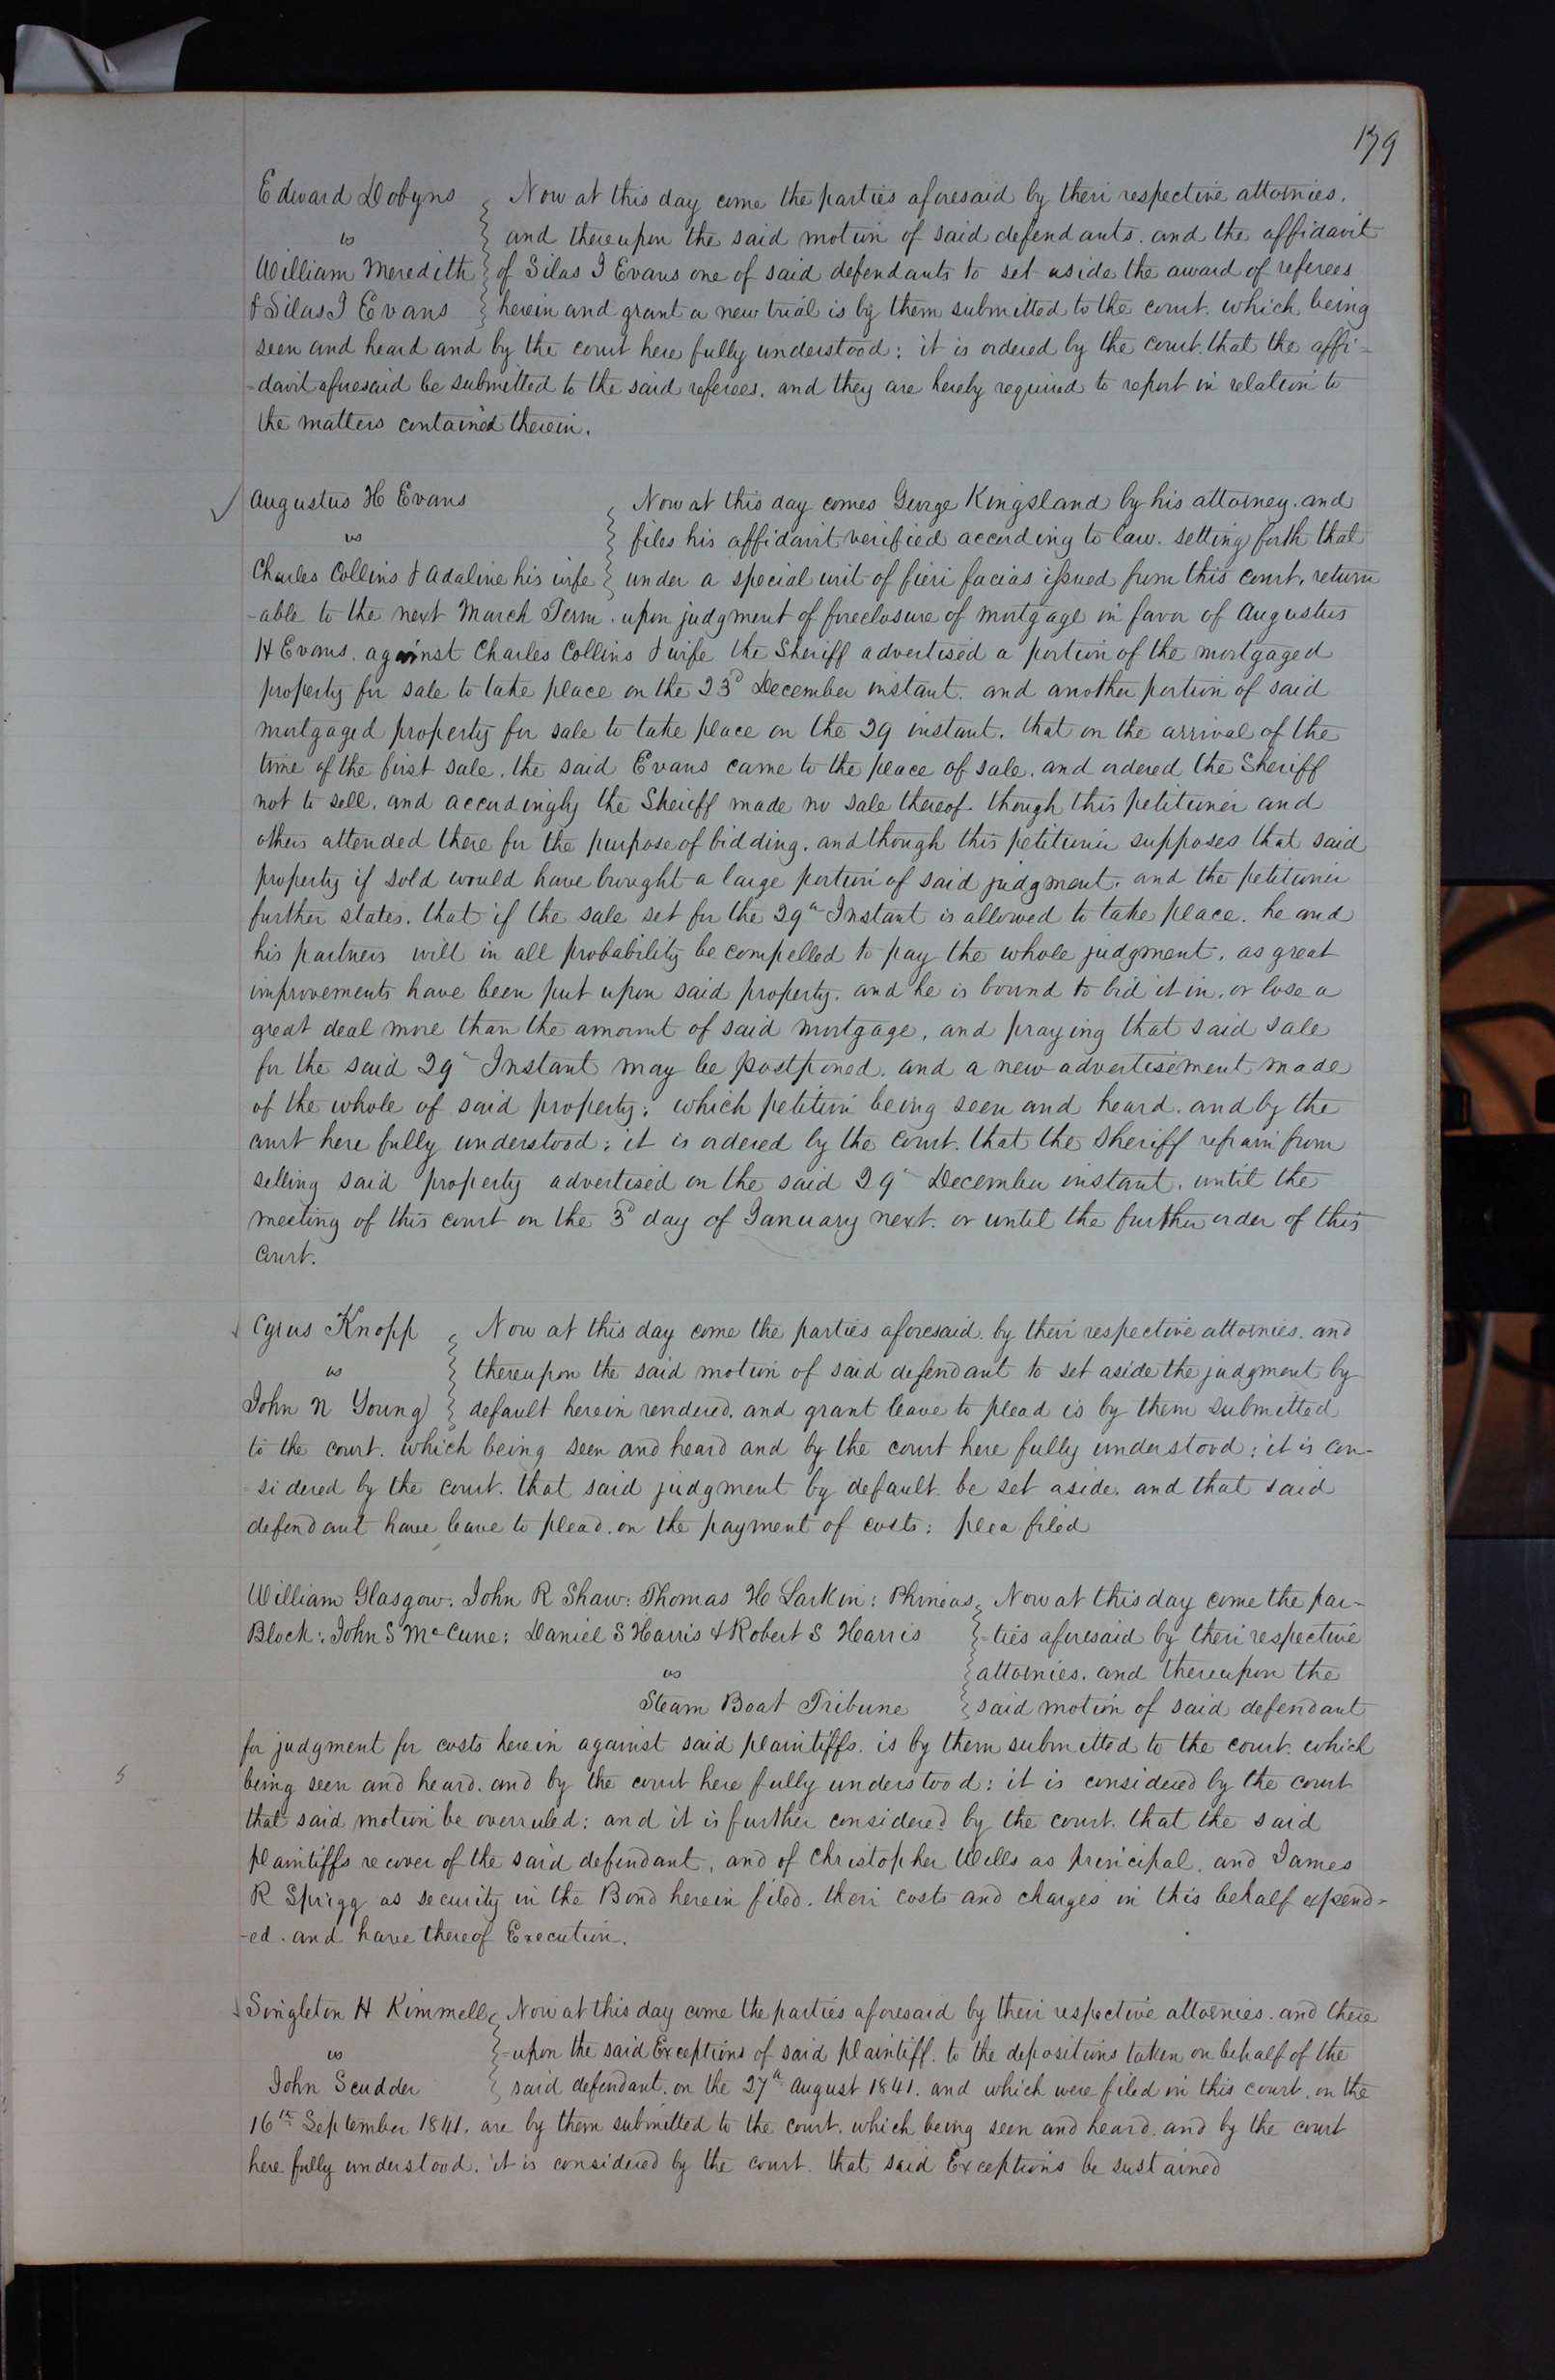 139
Edward Dobyns } Now at this day come the parties aforesaid by their respective attornies.
vs } and thereupon the said motion of said defendants. and the affidavit
William Meredith } of Silas I Evans one of said defendants to set aside the award of referees
& Silas I Evans } herein and grant a new trial is by them submitted to the court. which being
seen and heard and by the court here fully understood: it is ordered by the court. that the affi-
-davit aforesaid be submitted to the said referees. and they are hereby required to report in relation to
the matters contained therein.
Augustus H Evans } Now at this day comes George Kingsland by his attorney. and
vs } files his affidavit verified according to law. setting forth that
Charles Collins & Adaline his wife } under a special writ of fieri facias issued from this court, return
-able to the next March Term. upon judgment of foreclosure of mortgage in favor of Augustus
H Evans. against Charles Collins & wife the Sheriff advertised a portion of the mortgaged
property for sale to take place on the 23d December instant. and another portion of said
mortgaged property for sale to take place on the 29 instant. that on the arrival of the
time of the first sale. the said Evans came to the place of sale. and ordered the Sheriff
not to sell. and accordingly the Sheriff made no sale thereof. though this petitioner and
others attended there for the purpose of bidding. and though this petitioner supposes that said
property if sold would have brought a large portion of said judgment. and the petitioner
further states. that if the sale set for the 29th Instant is allowed to take place. he and
his partners will in all probability be compelled to pay the whole judgment. as great
improvements have been put upon said property. and he is bound to bid it in. or lose a
great deal more than the amount of said mortgage, and praying that said sale
for the said 29th Instant may be postponed. and a new advertisement made
of the whole of said property: which petition being seen and heard. and by the
court here fully understood: it is ordered by the court. that the sheriff refrain from
selling said property advertised on the said 29th December instant. until the
meeting of this court on the 3d day of January next. or until the further order of this
court.
Cyrus Knopp } Now at this day come the parties aforesaid. by their respective attornies. and
vs } thereupon the said motion of said defendant to set aside the judgment by
John N Young } default herein rendered. and grant leave to plead is by them submitted
to the court. which being seen and heard and by the court here fully understood: it is con-
-sidered by the court. that said judgment by default. be set aside. and that said
defendant have leave to plead. on the payment of costs: plea filed
William Glasgow: John R Shaw: Thomas H Larkin: Phineas } Now at this day come the par-
Block: John S McCune: Daniel S Harris & Robert S Harris } -ties aforesaid by their respective
vs } attornies. and thereupon the
Steam Boat Tribune } said motion of said defendant
for judgment for costs herein against said plaintiffs. is by them submitted to the court. which
being seen and heard. and by the court here fully understood: it is considered by the court
that said motion be overruled: and it is further considered by the court. that the said
plaintiffs recover of the said defendant, and of Christopher Wells as principal, and James
R Sprigg as security in the Bond herein filed. their costs and charges in this behalf expend-
-ed. and have thereof Execution.
Singleton H Kimmell } Now at this day come the parties aforesaid by their respective attornies. and there
vs } -upon the said Exceptions of said plaintiff. to the depositions taken on behalf of the
John Scudder } said defendant. on the 27th August 1841. and which were filed in this court. on the
16th September 1841. are by them submitted to the court. which being seen and heard. and by the court
here fully understood. it is considered by the court. that said Exceptions be sustained